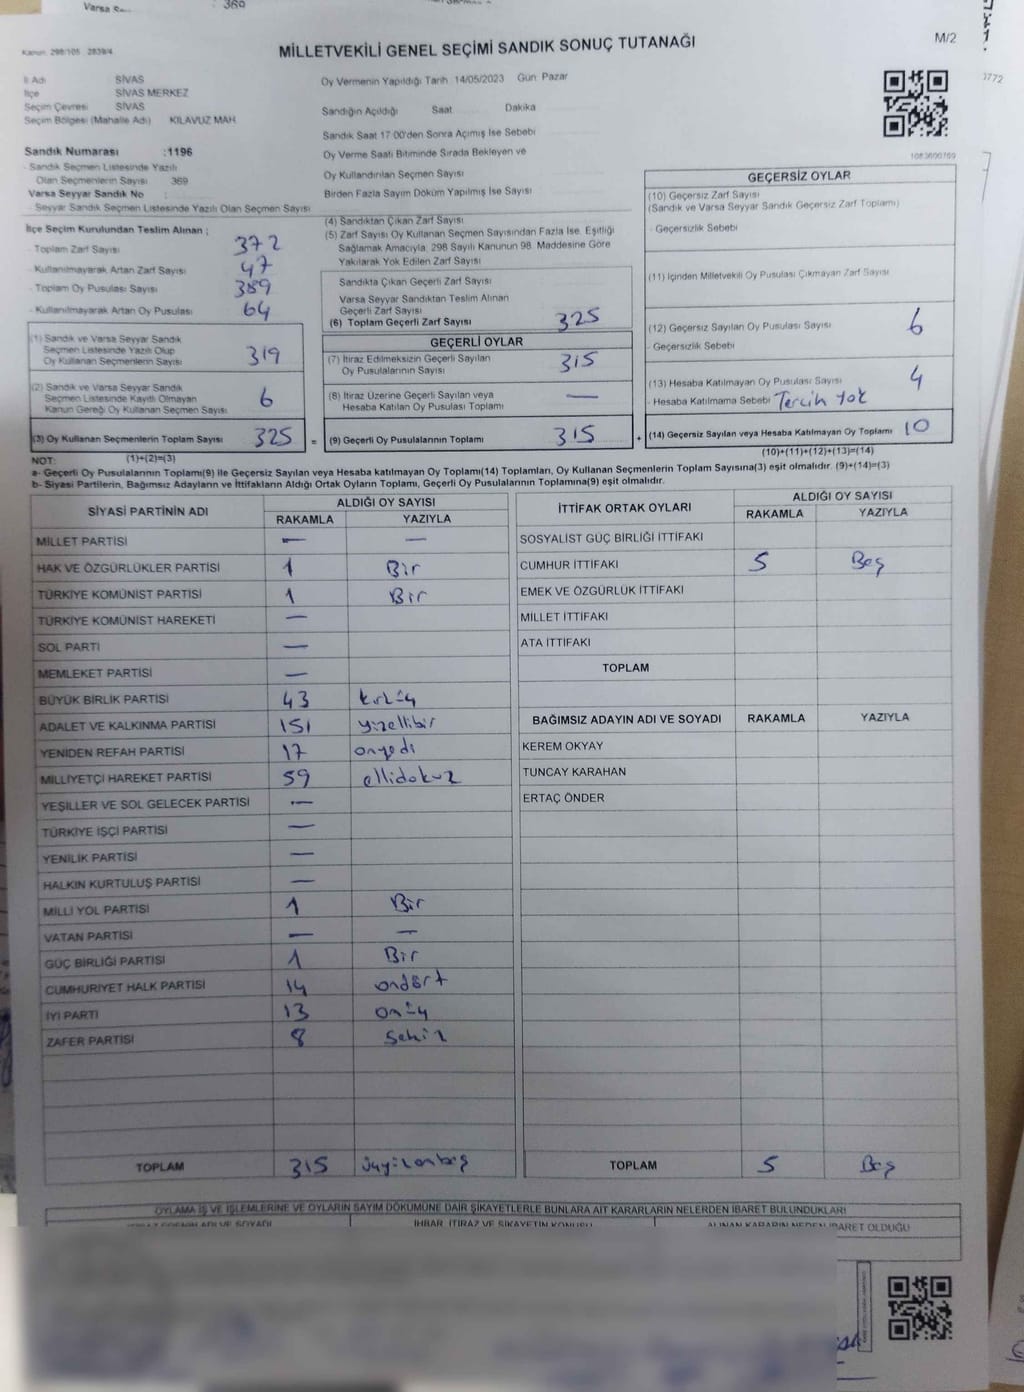 Varsa Se
: 369
Kanun: 298/105 2839/4
MİLLETVEKİLİ GENEL SEÇİMİ SANDIK SONUÇ TUTANAĞI
M/2
İl Adı SİVAS
İlçe SİVAS MERKEZ
Seçim Çevresi SİVAS
Seçim Bölgesi (Mahalle Adı) KILAVUZ MAH.
Oy Vermenin Yapıldığı Tarih 14/05/2023 Gün Pazar
Sandığın Açıldığı Saat Dakika
Sandık Saat 17:00'den Sonra Açımış İse Sebebi
Sandık Numarası :1196
- Sandık Seçmen Listesinde Yazılı
Olan Seçmenlerin Sayısı 369
Varsa Seyyar Sandık No :
- Seyyar Sandık Seçmen Listesinde Yazılı Olan Seçmen Sayısı
Oy Verme Saati Bitiminde Sırada Bekleyen ve
Oy Kullandırılan Seçmen Sayısı
Birden Fazla Sayım Döküm Yapılmış İse Sayısı
1083600769
İlçe Seçim Kurulundan Teslim Alınan ;
- Toplam Zarf Sayısı 372
- Kullanılmayarak Artan Zarf Sayısı 47
- Toplam Oy Pusulası Sayısı 389
- Kullanılmayarak Artan Oy Pusulası 64
(1) Sandık ve Varsa Seyyar Sandık
Seçmen Listesinde Yazılı Olup
Oy Kullanan Seçmenlerin Sayısı 319
(2) Sandık ve Varsa Seyyar Sandık
Seçmen Listesinde Kayıtlı Olmayan
Kanun Gereği Oy Kullanan Seçmen Sayısı 6
(3) Oy Kullanan Seçmenlerin Toplam Sayısı 325 =
(1)+(2)=(3)
(4) Sandıktan Çıkan Zarf Sayısı
(5) Zarf Sayısı Oy Kullanan Seçmen Sayısından Fazla İse, Eşitliği
Sağlamak Amacıyla, 298 Sayılı Kanunun 98. Maddesine Göre
Yakılarak Yok Edilen Zarf Sayısı
Sandıkta Çıkan Geçerli Zarf Sayısı
Varsa Seyyar Sandıktan Teslim Alınan
Geçerli Zarf Sayısı
(6) Toplam Geçerli Zarf Sayısı 325
GEÇERLİ OYLAR
(7) İtiraz Edilmeksizin Geçerli Sayılan
Oy Pusulalarının Sayısı 315
(8) İtiraz Üzerine Geçerli Sayılan veya
Hesaba Katılan Oy Pusulası Toplamı —
(9) Geçerli Oy Pusulalarının Toplamı 315 +
GEÇERSİZ OYLAR
(10) Geçersiz Zarf Sayısı
(Sandık ve Varsa Seyyar Sandık Geçersiz Zarf Toplamı)
- Geçersizlik Sebebi
(11) İçinden Milletvekili Oy Pusulası Çıkmayan Zarf Sayısı
(12) Geçersiz Sayılan Oy Pusulası Sayısı 6
- Geçersizlik Sebebi
(13) Hesaba Katılmayan Oy Pusulası Sayısı 4
- Hesaba Katılmama Sebebi Tercih Yok
(14) Geçersiz Sayılan veya Hesaba Katılmayan Oy Toplamı 10
(10)+(11)+(12)+(13)=(14)
NOT:
a- Geçerli Oy Pusulalarının Toplam(9) ile Geçersiz Sayılan veya Hesaba katılmayan Oy Toplamı(14) Toplamları, Oy Kullanan Seçmenlerin Toplam Sayısına(3) eşit olmalıdır. (9)+(14)=(3)
b- Siyasi Partilerin, Bağımsız Adayların ve İttifakların Aldığı Ortak Oyların Toplamı, Geçerli Oy Pusulalarının Toplamına(9) eşit olmalıdır.
SİYASİ PARTİNİN ADI ALDIĞI OY SAYISI
RAKAMLA YAZIYLA
MİLLET PARTİSİ — —
HAK VE ÖZGÜRLÜKLER PARTİSİ 1 Bir
TÜRKİYE KOMÜNİST PARTİSİ 1 Bir
TÜRKİYE KOMÜNİST HAREKETİ —
SOL PARTİ —
MEMLEKET PARTİSİ —
BÜYÜK BİRLİK PARTİSİ 43 kırküç
ADALET VE KALKINMA PARTİSİ 151 yüzellibir
YENİDEN REFAH PARTİSİ 17 onyedi
MİLLİYETÇİ HAREKET PARTİSİ 59 ellidokuz
YEŞİLLER VE SOL GELECEK PARTİSİ —
TÜRKİYE İŞÇİ PARTİSİ —
YENİLİK PARTİSİ —
HALKIN KURTULUŞ PARTİSİ —
MİLLİ YOL PARTİSİ 1 Bir
VATAN PARTİSİ — —
GÜÇ BİRLİĞİ PARTİSİ 1 Bir
CUMHURİYET HALK PARTİSİ 14 ondört
İYİ PARTİ 13 onüç
ZAFER PARTİSİ 8 Sekiz
TOPLAM 315 üçyüzonbeş
İTTİFAK ORTAK OYLARI ALDIĞI OY SAYISI
RAKAMLA YAZIYLA
SOSYALİST GÜÇ BİRLİĞİ İTTİFAKI
CUMHUR İTTİFAKI 5 Beş
EMEK VE ÖZGÜRLÜK İTTİFAKI
MİLLET İTTİFAKI
ATA İTTİFAKI
TOPLAM
BAĞIMSIZ ADAYIN ADI VE SOYADI RAKAMLA YAZIYLA
KEREM OKYAY
TUNCAY KARAHAN
ERTAÇ ÖNDER
TOPLAM 5 Beş
OYLAMA İŞ VE İŞLEMLERİNE VE OYLARIN SAYIM DÖKÜMÜNE DAİR ŞİKAYETLERLE BUNLARA AİT KARARLARIN NELERDEN İBARET BULUNDUKLARI
İHBAR, İTİRAZ VE ŞİKAYETİN KONUSU ALINAN KARARIN NEDEN İBARET OLDUĞU